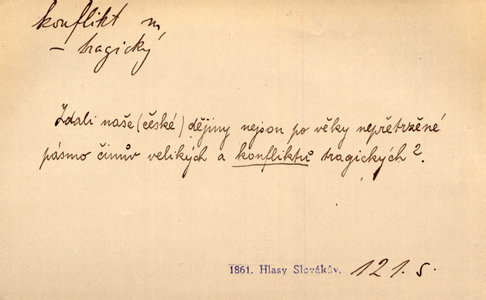 konflikt m
– tragický
Zdali naše (české) dějiny nejsou po věky nepřetrzěné
pásmo činův velikých a konfliktů tragických?.
1861. Hlasy Slovákův. 121. s.